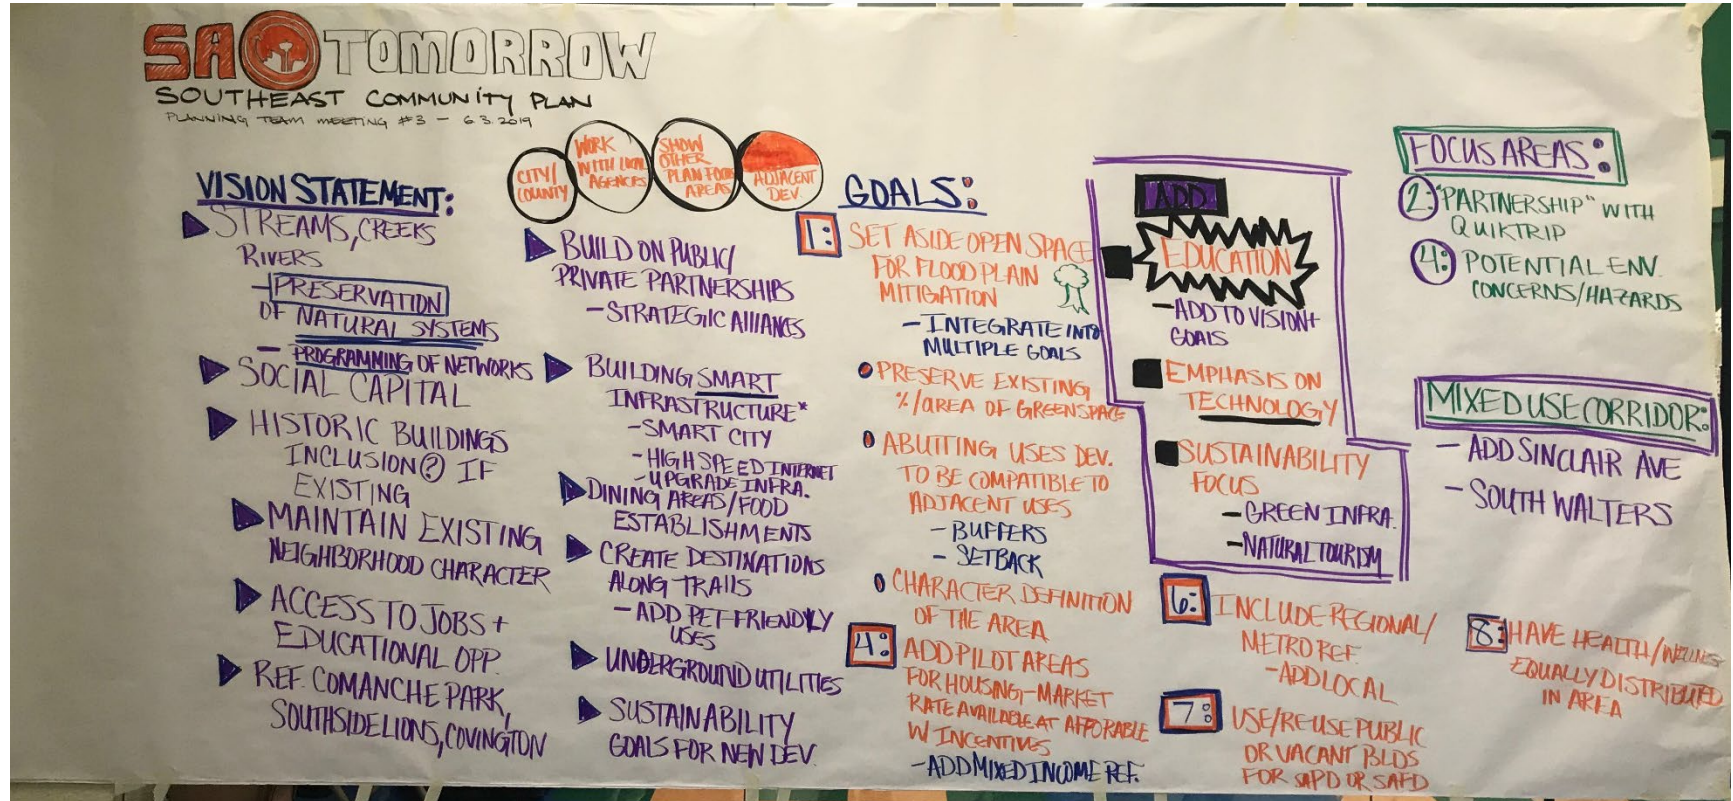 SA TOMORROW
SOUTHEAST COMMUNITY PLAN
PLANNING TEAM MEETING #3 - 6.3.2019
CITY/
COUNTY
WORK
WITH LOCAL
AGENCIES
SHOW
OTHER
PLAN FOCUS
AREAS
ADJACENT
DEV.
VISION STATEMENT:
STREAMS, CREEKS
RIVERS
- PRESERVATION
OF NATURAL SYSTEMS
- PROGRAMMING OF NETWORKS
SOCIAL CAPITAL
HISTORIC BUILDINGS
INCLUSION? IF
EXISTING
MAINTAIN EXISTING
NEIGHBORHOOD CHARACTER
ACCESS TO JOBS +
EDUCATIONAL OPP.
REF. COMANCHE PARK,
SOUTHSIDE LIONS, COVINGTON
BUILD ON PUBLIC/
PRIVATE PARTNERSHIPS
- STRATEGIC AllIANCES
BUILDING SMART
INFRASTRUCTURE*
- SMART CITY
- HIGH SPEED INTERNET
- UPGRADE INFRA.
DINING AREAS/FOOD
ESTABLISHMENTS
CREATE DESTINATIONS
ALONG TRAIlS
- ADD PET-FRIENDLY
USES
UNDERGROUND UTILITIES
SUSTAINABILITY
GOALS FOR NEW DEV.
GOALS:
1: SET ASIDE OPEN SPACE
FOR FLOOD PLAIN
MITIGATION
- INTEGRATE INTO
MULTIPLE GOALS
PRESERVE EXISTING
%/AREA OF GREENSPACE
ABUTTING USES DEV.
TO BE COMPATIBLE TO
ADJACENT USES
- BUFFERS
- SETBACK
CHARACTER DEFINITION
OF THE AREA
4: ADD PILOT AREAS
FOR HOUSING-MARKET
RATE AVAILABLE AT AFFORABLE
W/ INCENTIVES
- ADD MIXED INCOME REF.
ADD
EDUCATION
- ADD TO VISION +
GOALS
EMPHASIS ON
TECHNOLOGY
SUSTAINABILITY
FOCUS
- GREEN INFRA.
- NATURAL TOURISM
6: INCLUDE REGIONAL/
METRO REF.
- ADD LOCAL
7: USE/RE-USE PUBLIC
OR VACANT BLDS
FOR SAPD OR SAFD
FOCUS AREAS:
2: "PARTNERSHIP" WITH
QUIKTRIP
4: POTENTIAL ENV.
CONCERNS/HAZARDS
MIXED USE CORRIDOR:
- ADD SINCLAIR AVE
- SOUTH WALTERS
8: HAVE HEALTH/WELLNESS
EQUALLY DISTRIBUTED
IN AREA